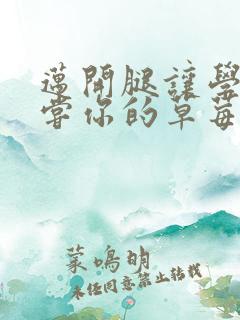 邁開腿讓學
嘗你的草莓
菜鳴明
未经同意禁止转载